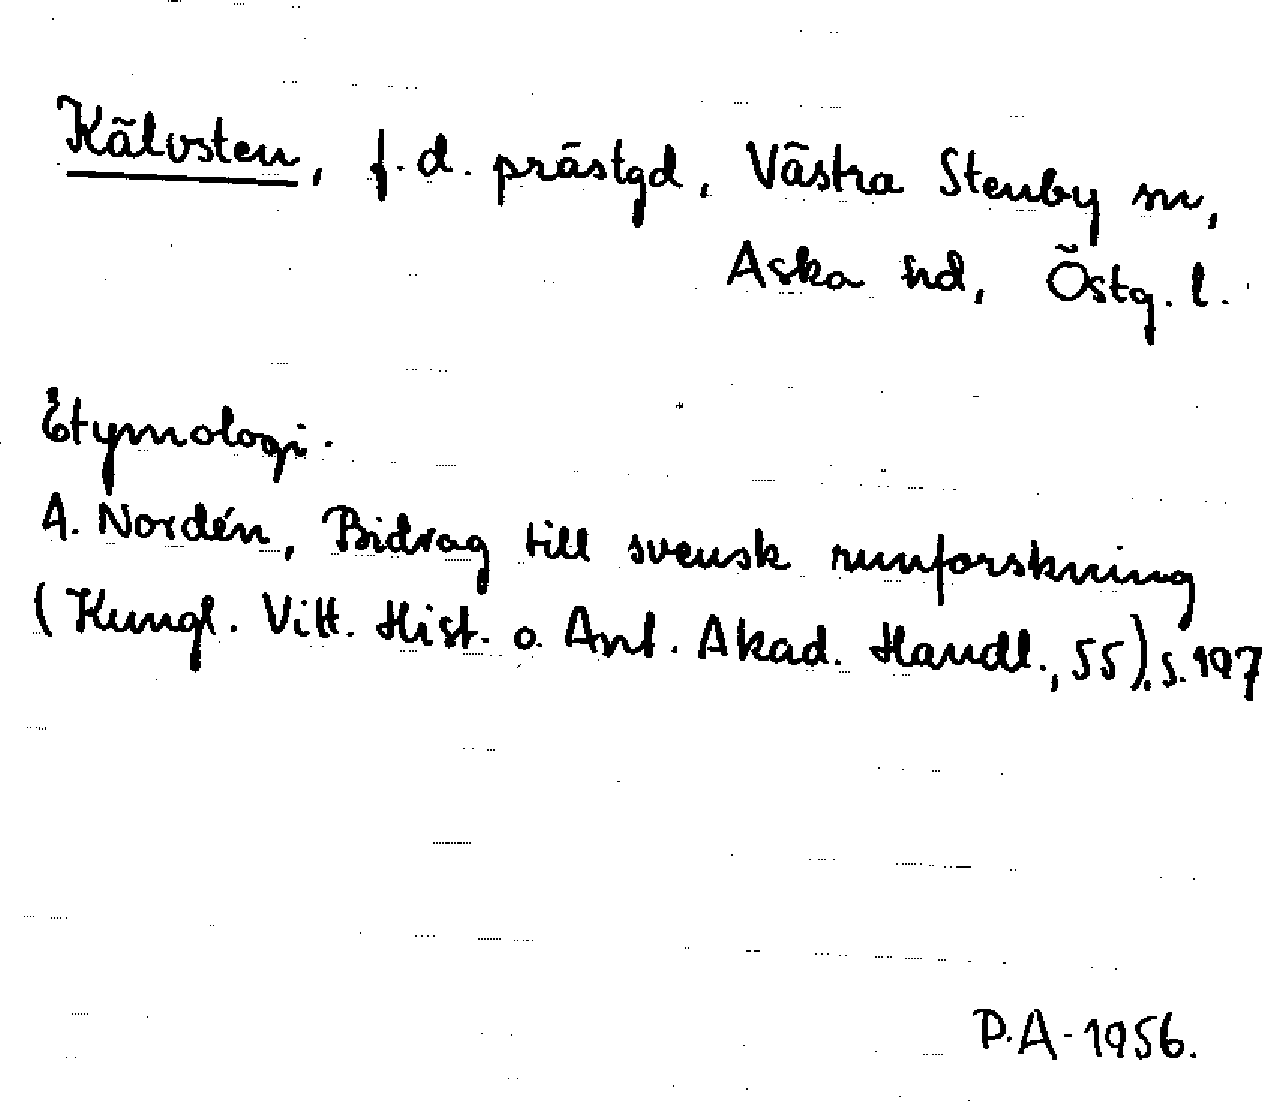 Kälvsten, f.d. prästgd, Västra Stenby sn,
Aska hd, Östg. l.
Etymologi.
A. Nordén, Bidrag till svensk runforskning
(Kungl. Vitt. Hist. o. Ant. Akad. Handl., 55). s. 197
P.A. 1956.